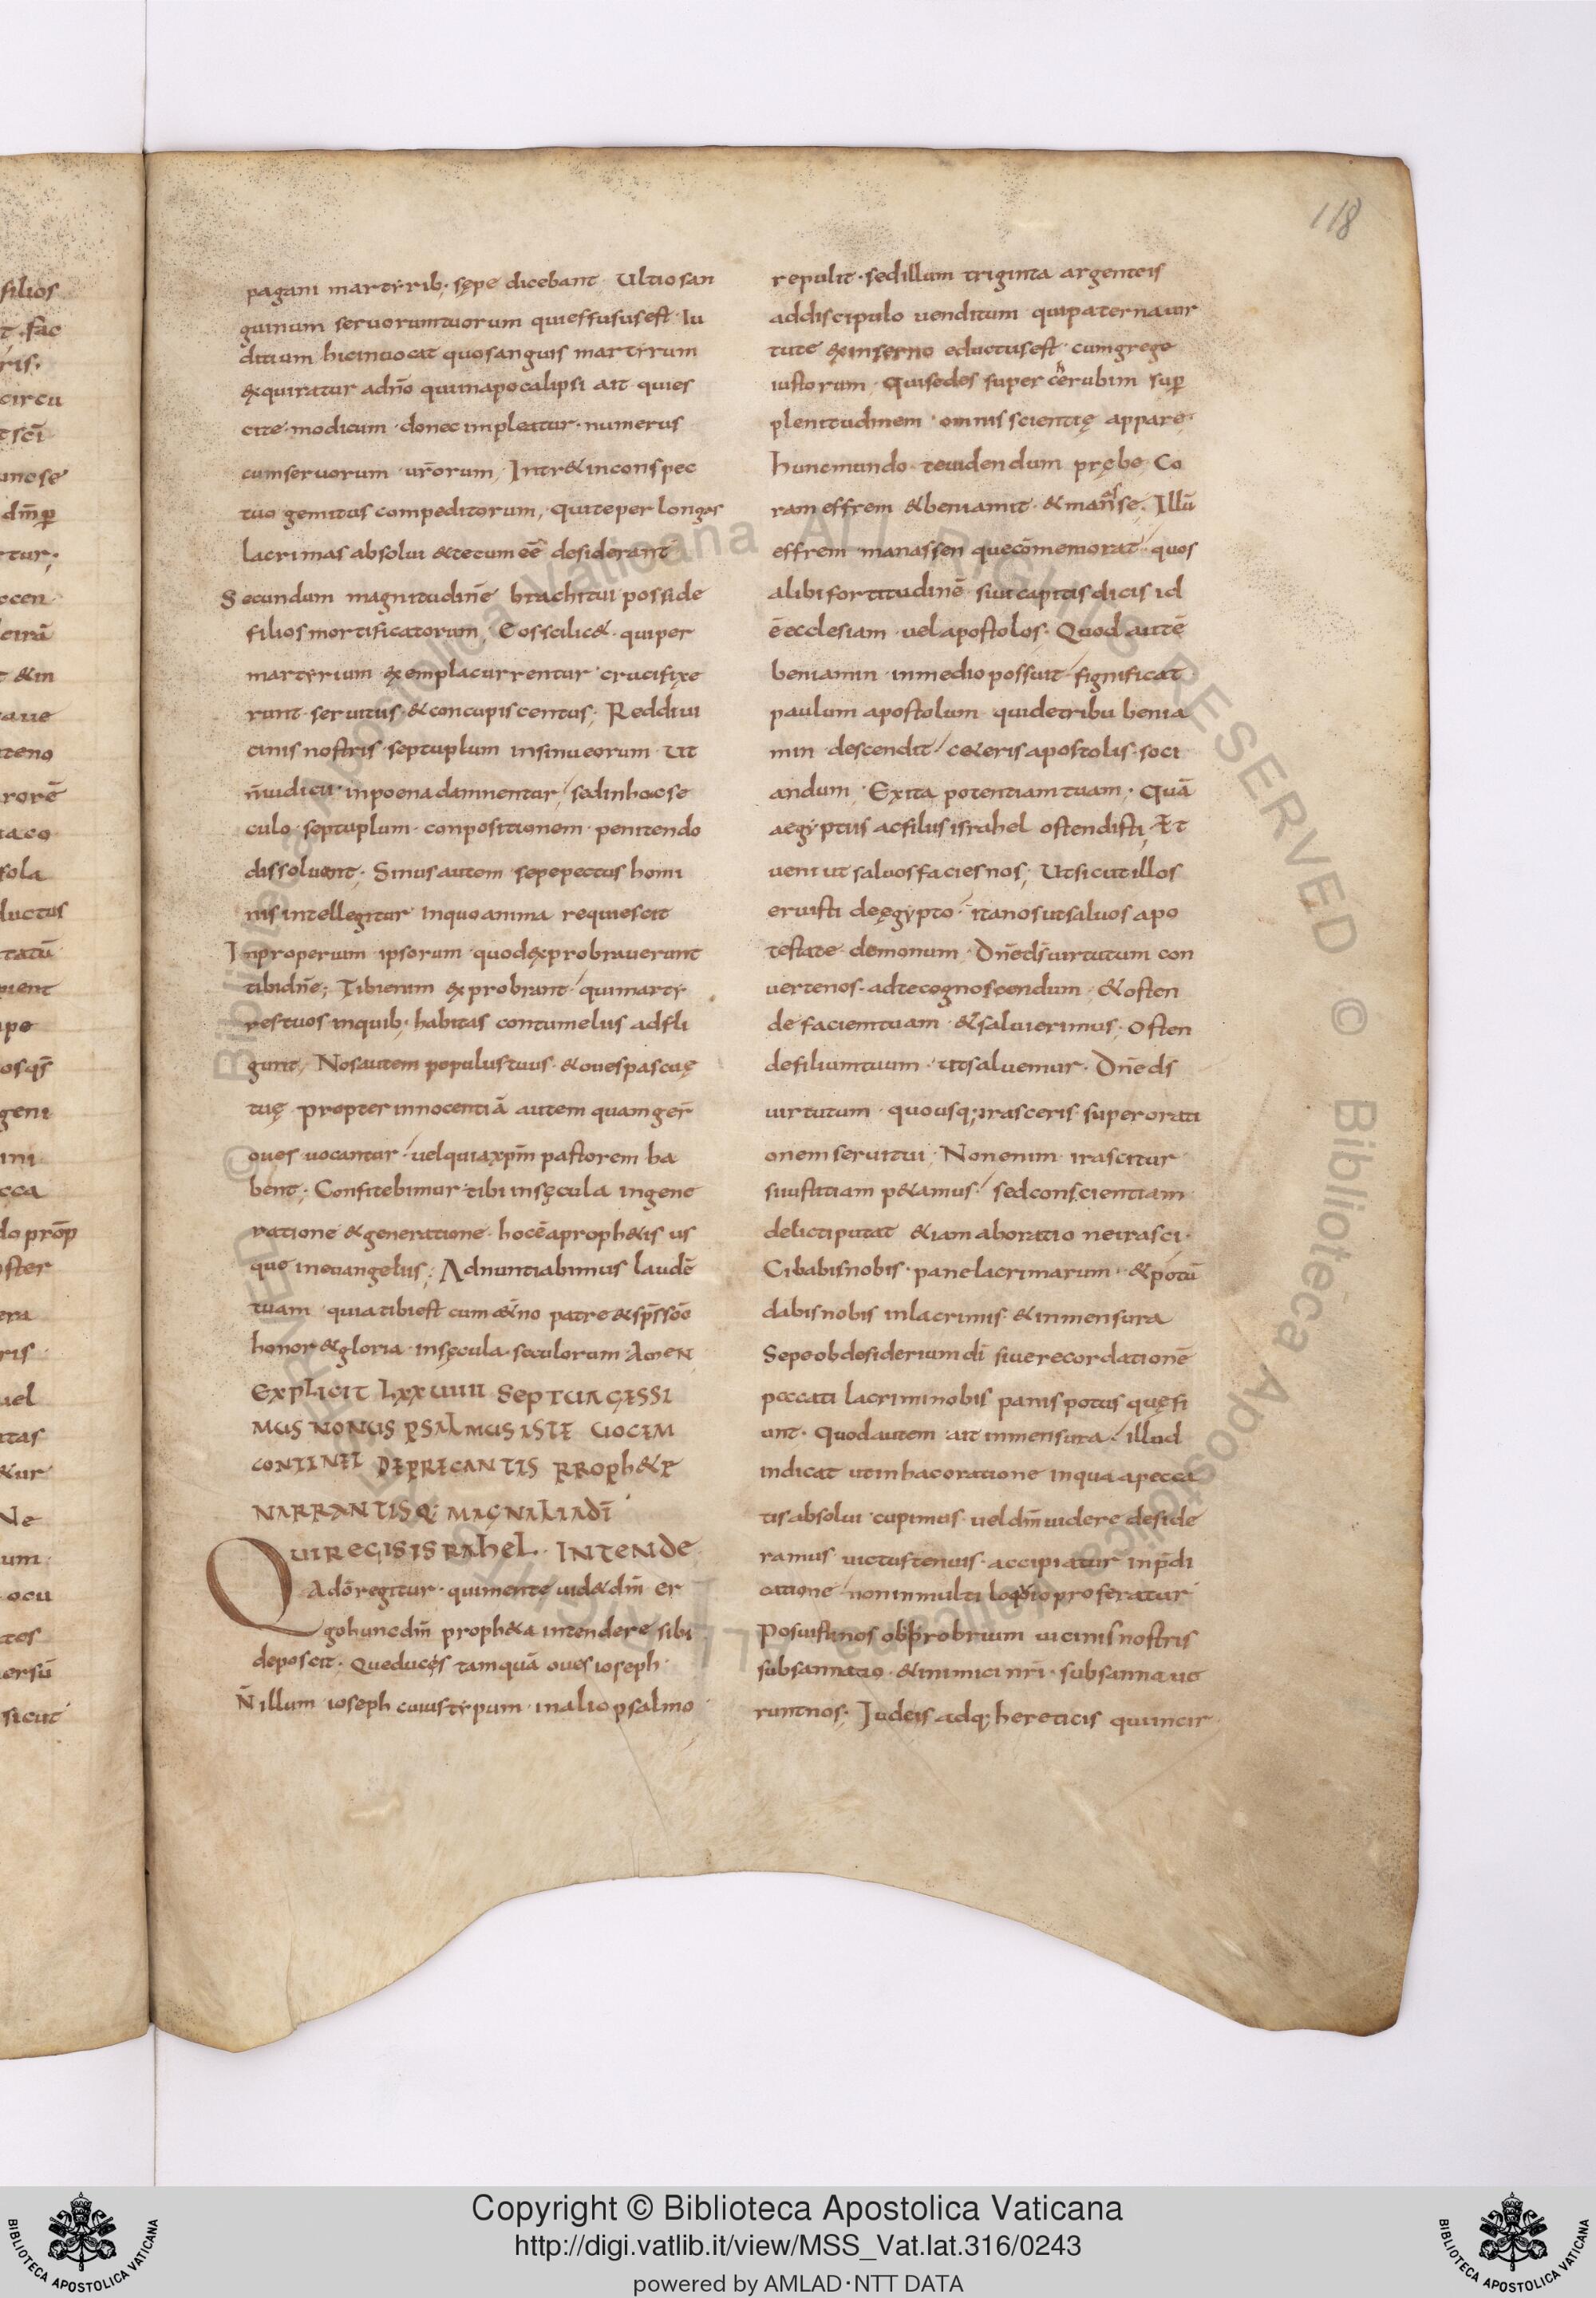 118
pagani martyrib; sępe dicebant Ultiosan
guinum seruorumtuorum quieffususest. Iu
ditium hicinuocat quosanguis martyrum
exquiratur adño quiinapocalipsi ait quies
cite modicum donec impleatur numerus
cumseruorum ur̄orum, Intr&inconspec
tuo gemitus compeditorum, Quiteper longas
lacrimas absolui &tecum eē desiderant
Secundum magnitudinē brachitui posside
filiosmortificatorum, Eosscilic& quiper
martyrium exemplacurrentur crucifixe
runt seruitus &concupiscentus; Reddiui
cinis nostris septuplum insinueorum Ut
n̄iudicii inpoenadamnentur sedinhocse
culo septuplum conpositionem penitendo
dissoluant; Sinusautem sepepectus homi
nis intellegitur inquoanima requiescit
Inproperium ipsorum quodexprobrauerunt
tibidn̄e; Tibienim exprobrant quimarty
restuos inquib; habitas contumeliis adfli
gunt, Nosautem populustuus &ouespascuę
tuę propter innocentiā autem quamger̄
oues uocantur uelquiaxpm̄ pastorem ha
bent; Confitebimur tibi insęcula ingene
ratione &generatione hocēaproph&is us
que ineuangeliis; Adnuntiabimus laudē
tuam quiatibiest cum æt̄no patre &sp̄ssc̄o
honor &gloria insęcula seculorum AMEN
EXPLICIT LXXVIIII SEPTUAGESSI
MUS NONUS PSALMUS ISTE UOCEM
CONTINET DEPRECANTIS PROPH&Ę
NARRANTISQ; MAGNALIADĪ
QUIREGISISRAHEL INTENDE
Adōregitur quimente uid&dm̄ er
gohuncdm̄ proph&a intendere sibi
deposcit. Queducęs tamquā ouesioseph
N̄illum ioseph cuiustypum inaliopsalmo
repulit sedillum triginta argenteis
addiscipulo uenditum quipaternauir
tute exinferno eductusest cumgrege
iustorum Quisedes super cherubim sup̄
plenitudinem omnisscientię appare
huncmundo teuidendum prębe Co
ram effrem &beniamit &mannasse. Illū
effrem manassen quecōmemorat quos
alibifortitudinē siuicapitis dicis id
ē ecclesiam uelapostolos. Quod autē
beniamin inmedio possuit significat
paulum apostolum quidetribu benia
min descendit c&erisapostolis soci
andum, Exita potentiamtuam. Quā
aegyptus acfilusisrahel ostendisti, Et
ueni ut saluosfaciesnos; Utsicutillos
eruisti deęgypto itanosutsaluos apo
testate demonum Dn̄eds̄uirtutum con
uertenos adtecognoscendum &osten
de faciemtuam &salui erimus Osten
defiliumtuum utsaluemur. Dn̄e ds̄
uirtutum quousq; irasceris superorati
onemseruitui, Nonenim irascitur
siiustitiam p&amus sedconscientiam
delictiputat &iam aboratio neirasci
Cibabisnobis panelacrimarum &potū
dabisnobis inlacrimis &inmensura
Sepeobdesideriumdī siuerecordationē
peccati lacriminobis panis potus quęsi
unt. Quodautem ait inmensura illud
indicat utinhacoratione inquaapecca
tisabsolui cupimus ueldm̄uidere deside
ramus uictustenuis accipiatur inp̄di
catione noninmulti loquioproferatur
Posuistinos obprobrium uicinisnostris
subsannatio &inimici nr̄i subsannaue
runtnos. Iudeis adq; hereticis quiincir
Copyright © Biblioteca Apostolica Vaticana
http://digi.vatlib.it/view/MSS_Vat.lat.316/0243
powered by AMLAD·NTT DATA
BIBLIOTECA APOSTOLICA VATICANA
BIBLIOTECA APOSTOLICA VATICANA